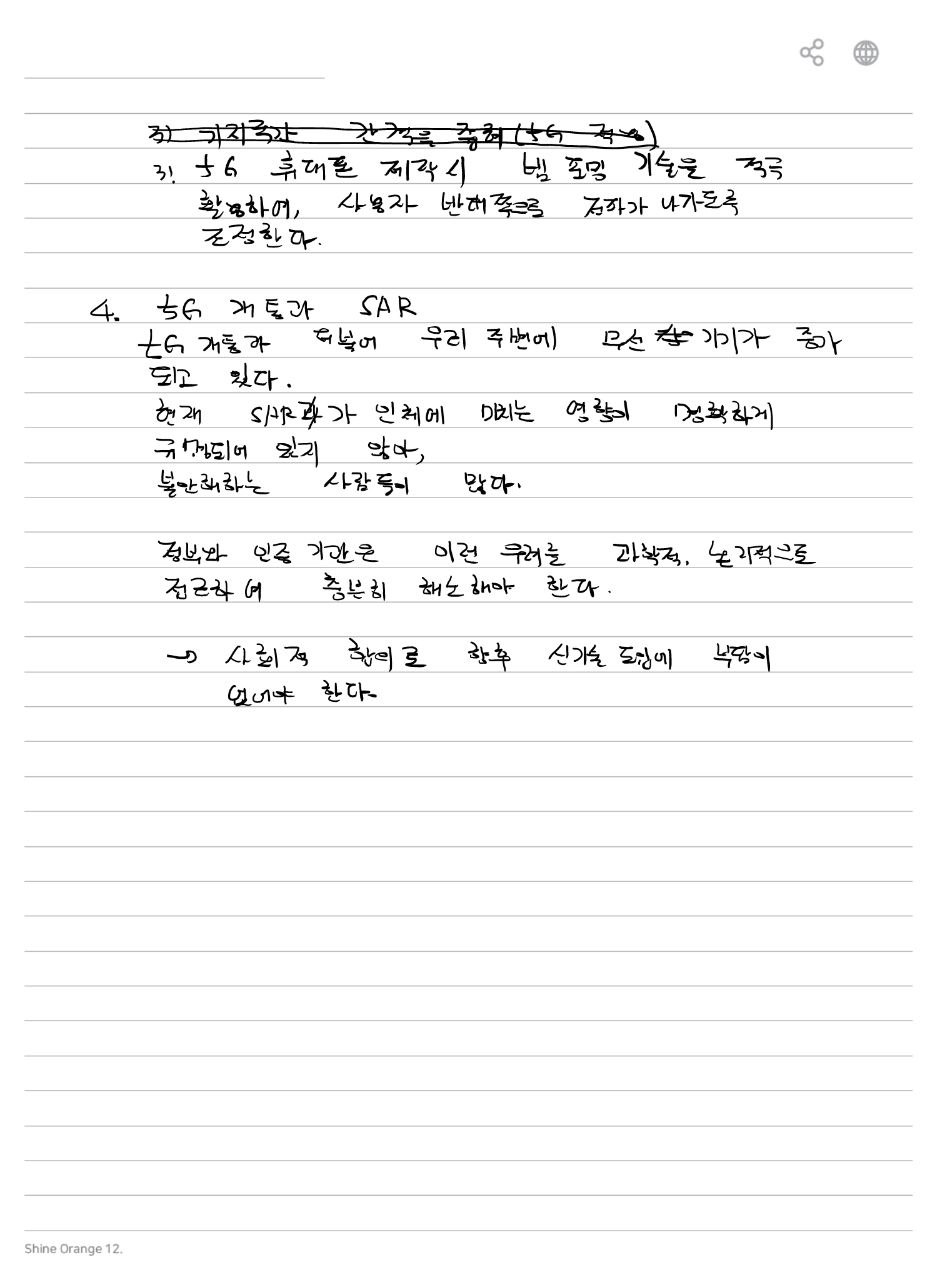 3) 기지국간 간격을 좁혀 (5G 적용)
3). 5G 휴대폰 제작시 빔 포밍 기술을 적극
활용하여, 사용자 반대쪽으로 전파가 나가도록
조정한다.
4. 5G 개통과 SAR
5G 개통과 더불어 우리 주변에 무선 기기가 증가
되고 있다.
현재 SAR가 인체에 미치는 영향이 명확하게
규명되어 있지 않아,
불안해하는 사람들이 많다.
정부와 인증 기관은 이런 우려를 과학적, 논리적으로
접근하여 충분히 해소해야 한다.
→ 사회적 합의로 향후 신기술 도입에 부담이
없어야 한다.
Shine Orange 12.